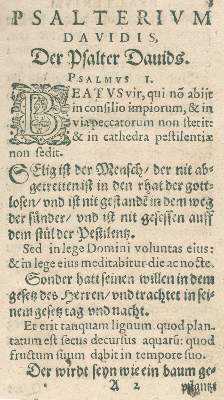 PSALTERIVM
DAVIDIS,
Der Psalter Dauids.
PSALMVS I.
BEATVS vir, qui nō abijt
in consilio impiorum, & in
via peccatorum non stetit:
& in cathedra pestilentiæ
non sedit.
SElig ist der Mensch/ der nit ab-
getrettenist in den rhat der gott-
losen/ vnd ist nit gestandē in dem weg
der sünder/ vnd ist nit gesessen auff
dem stůl der Pestilentz.
Sed in lege Domini voluntas eius:
& in lege eius meditabitur die ac nocte.
Sonder hatt seinen willen in dem
gesetz des Herren/ vnd trachtet in sei-
nem gesetz tag vnd nacht.
Et erit tanquam lignum quod plan-
tatum est secus decursus aquarū: quod
fructum suum dabit in tempore suo.
Der wirdt seyn wie ein baum ge-
A 2 pflantzt